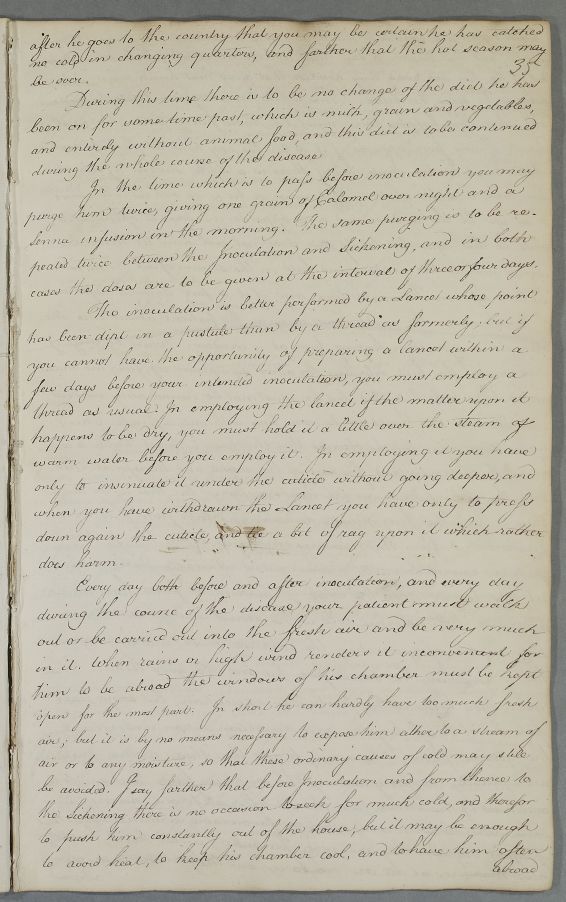 after he goes to the country that you may be certain he has catched
no cold in changing quarters, and farther that the hot season may
35
be over.
During this time there is to be no change of the diet he has
been on for some time past, which is milk, grain and vegetables,
and entirely without animal food, and this diet is to be continued
during the whole course of the disease
In the time which is to pass before inoculation you may
purge him twice, giving one grain of Calomel over night and a
Senna infusion in the morning. The same purging is to be re-
peated twice between the Inoculation and Sickening, and in both
cases the doses are to be given at the interval of three or four days.
The inoculation is better performed by a Lancet whose point
has been dipt in a pustule than by a thread as formerly, but if
you cannot have the opportunity of preparing a lancet within a
few days before your intended inoculation, you must employ a
thread as usual. In employing the lancet if the matter upon it
happens to be dry, you must hold it a little over the steam of
warm water before you employ it. In employing it you have
only to insinuate it under the cuticle without going deeper, and
when you have withdrawn the Lancet you have only to press
down again the cuticle, and tie a bit of rag upon it which rather
does harm.
Every day both before and after inoculation, and every day
during the course of the disease your patient must walk
out or be carried out into the fresh air and be very much
in it. When rains or high wind renders it inconvenient for
him to be abroad the windows of his chamber must be kept
open for the most part. In short he can hardly have too much fresh
air; but it is by no means necessary to expose him either to a stream of
air or to any moisture, so that these ordinary causes of cold may still
be avoided. I say farther that before Inoculation and from thence to
the Sickening there is no occasion to seek for much cold, and therefor
to push him constantly out of the house, but it may be enough
to avoid heat, to keep his chamber cool, and to have him often
abroad